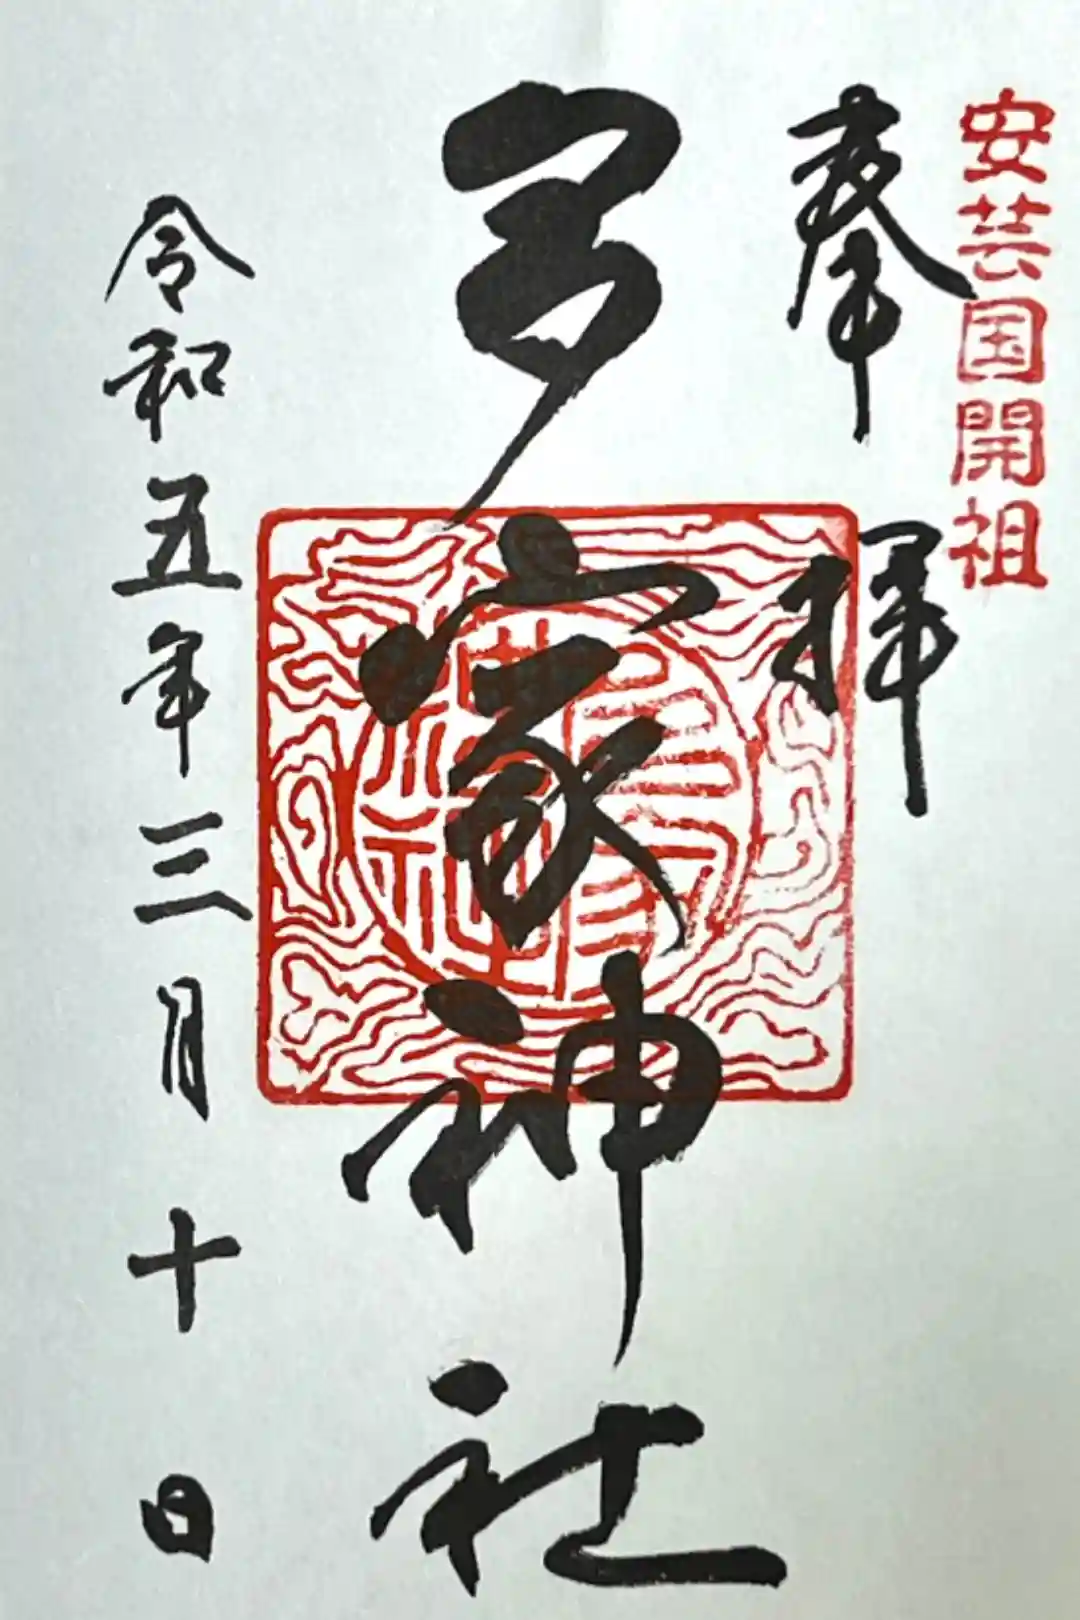 安芸国開祖
奉拝
多家神社
令和五年三月十日